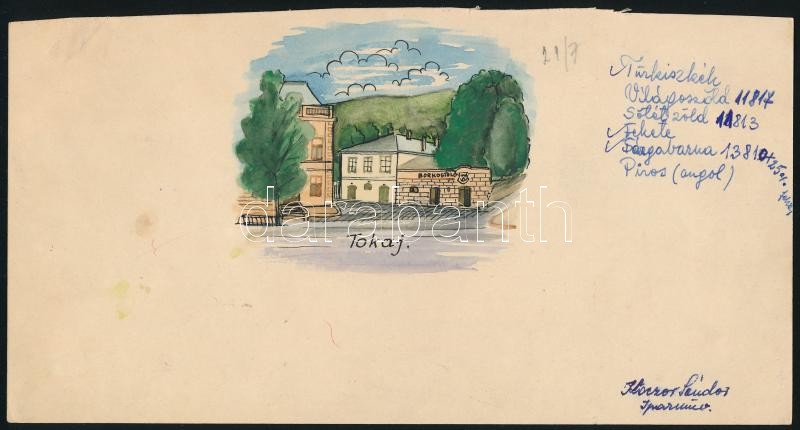 21/7
Türkiszkék
Világoszöld 11817
Sötétzöld 11813
Fekete
Sárgabarna 13810+25%
Piros (angol)
BORKOSTOLÓ
Tokaj.
darabanth
Sándor
Iparműv.